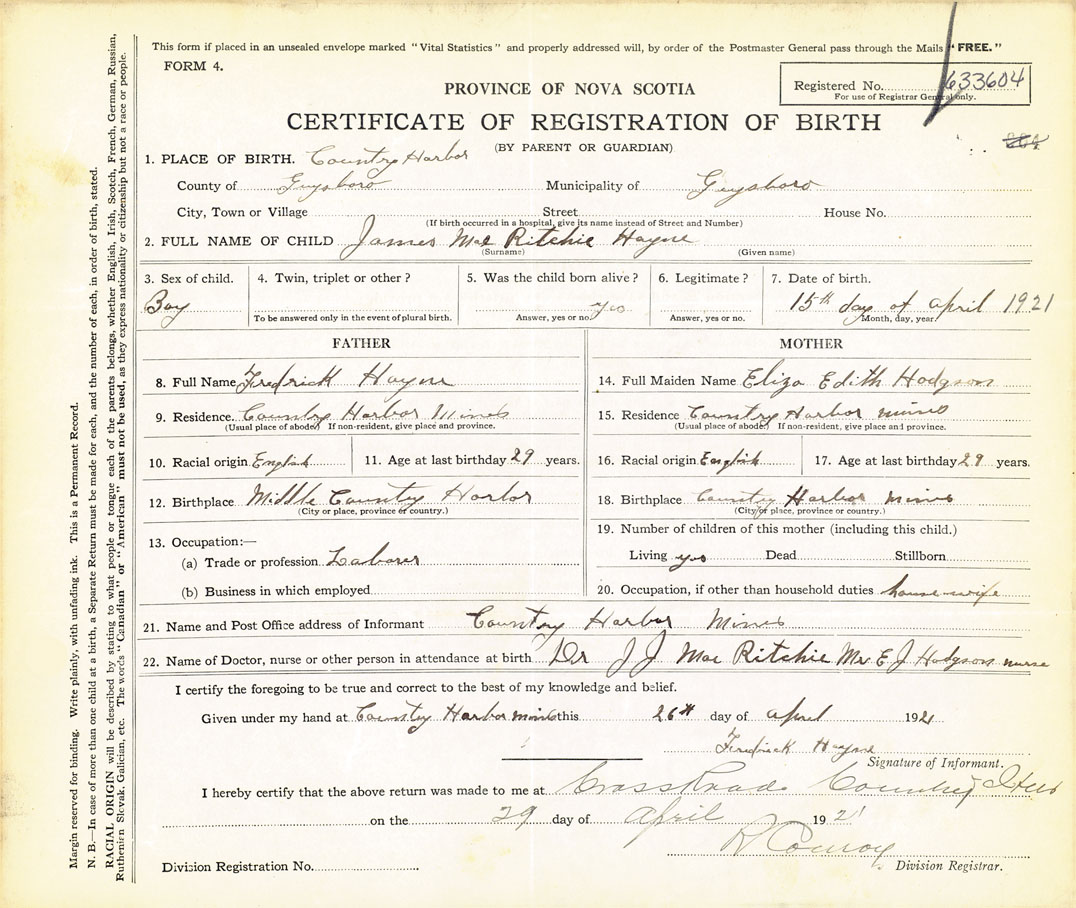 This form if placed in an unsealed envelope marked "Vital Statistics" and properly addressed will, by order of the Postmaster General pass through the Mails "FREE."
FORM 4.
Registered No. 633604
For use of Registrar General only.
PROVINCE OF NOVA SCOTIA
CERTIFICATE OF REGISTRATION OF BIRTH
(BY PARENT OR GUARDIAN)
1. PLACE OF BIRTH. Country Harbor
County of Guysboro Municipality of Guysboro
City, Town or Village Street House No.
(If birth occurred in a hospital, give its name instead of Street and Number)
2. FULL NAME OF CHILD James Mac Ritchie Hayne
(Surname) (Given name)
3. Sex of child. 4. Twin, triplet or other? 5. Was the child born alive? 6. Legitimate? 7. Date of birth.
Boy yes 15th day of April 1921
To be answered only in the event of plural birth. Answer, yes or no. Answer, yes or no. Month, day, year.
FATHER
8. Full Name Fredrick Hayne
9. Residence. Country Harbor Mines
(Usual place of abode.) If non-resident, give place and province.
10. Racial origin English 11. Age at last birthday 29 years.
12. Birthplace Middle Country Harbor
(City or place, province or country.)
13. Occupation:—
(a) Trade or profession Laborer
(b) Business in which employed
MOTHER
14. Full Maiden Name Eliza Edith Hodgson
15. Residence Country Harbor mines
(Usual place of abode.) If non-resident, give place and province.
16. Racial origin English 17. Age at last birthday 29 years.
18. Birthplace Country Harbor mines
(City or place, province or country.)
19. Number of children of this mother (including this child.)
Living yes Dead Stillborn
20. Occupation, if other than household duties house-wife
21. Name and Post Office address of Informant Country Harbor Mines
22. Name of Doctor, nurse or other person in attendance at birth Dr J J Mac Ritchie Mrs E J Hodgson nurse
I certify the foregoing to be true and correct to the best of my knowledge and belief.
Given under my hand at Country Harbor mines this 26th day of April 1921
Fredrick Hayne
Signature of Informant.
I hereby certify that the above return was made to me at Cross Roads Country
on the 29 day of April 1921
R Conroy
Division Registrar.
Division Registration No.
Margin reserved for binding. Write plainly, with unfading ink. This is a Permanent Record.
N. B.—In case of more than one child at a birth, a Separate Return must be made for each, and the number of each, in order of birth, stated.
RACIAL ORIGIN will be described by stating to what people or tongue each of the parents belongs, whether English, Irish, Scotch, French, German, Russian,
Ruthenian Slovak, Galician, etc. The words "Canadian" or "American" must not be used, as they express nationality or citizenship but not a race or people.